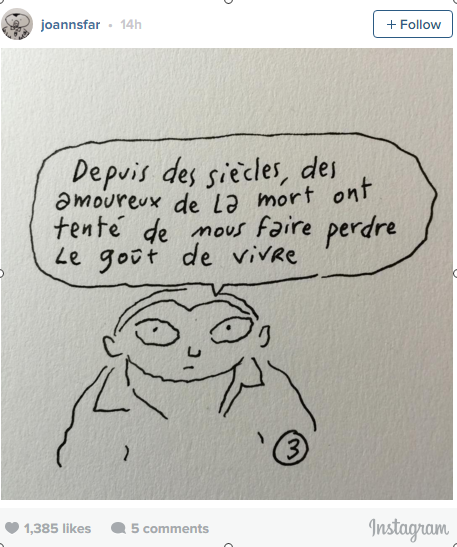 joannsfar • 14h
+ Follow
Depuis des siècles, des
amoureux de la mort ont
tenté de nous faire perdre
le goût de vivre
3
1,385 likes 5 comments
Instagram